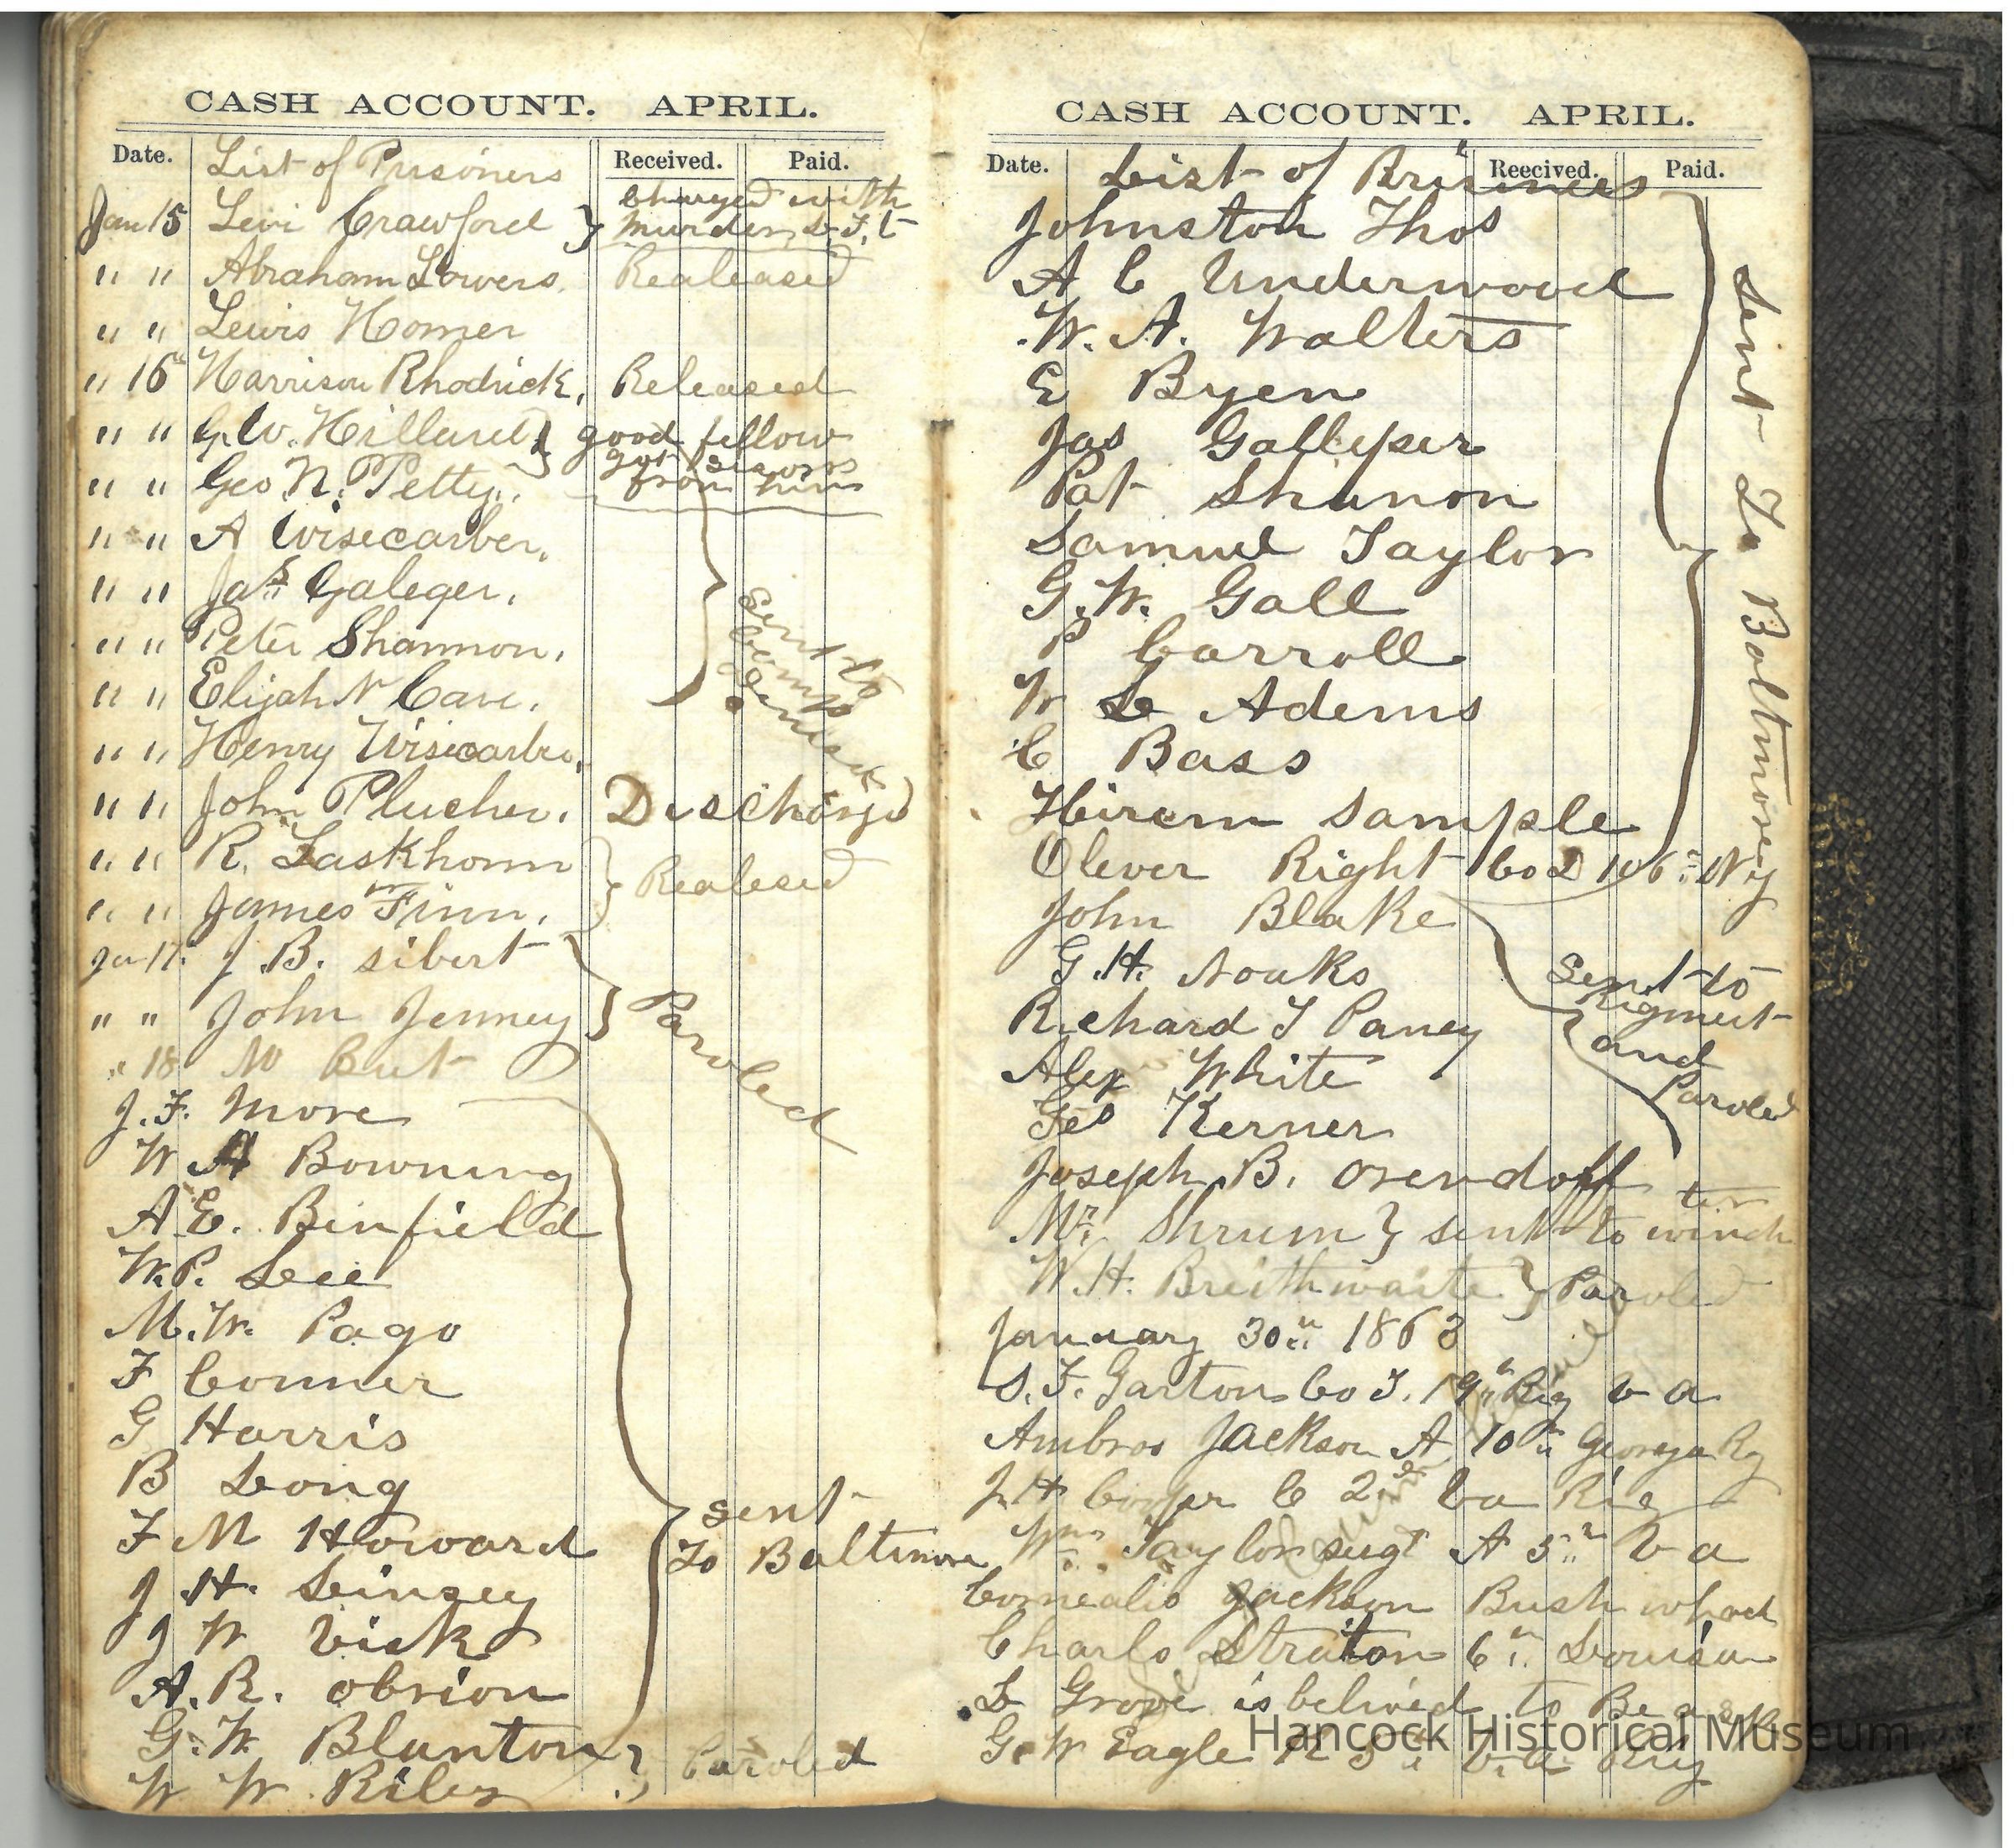 CASH ACCOUNT. APRIL.
Date. List of Prisoners Received. Paid.
Jan 15 Levi Crawford } Charged with murder
" " Abraham Lowers. Realeased
" " Lewis Homer
" 16 Harrison Rhodrick. Released
" " G.W. Hillard } good fellow
" " Geo. N. Petty. got from him
" " A Wisecarber.
" " Jas Galeger.
" " Peter Shannon.
" " Elijah N Cave.
" " Henry Wisecarber.
Sent to Camp
" " John Plucher. Discharjd
" " R. Laskhorn
" " James Finn. } Realesed
Jan 17 J. B. sibert
" " John Jenney } Paroled
" 18 W But
J. F. More
W A Bowning
A. E. Binfield
W. P. Lee
M. W. Pago
F Conner
G Harris
B Long
F M Howard
J H. Linzey
J W Vick
A. R. obrion
sent To Baltimore
G. W. Blunton
W W Riley } Paroled
CASH ACCOUNT. APRIL.
Date. List of Reecived. Paid.
Johnston Thos
A C Underwood
W. A. Walters
E Byen
Jas Galleper
Pat Shunon
Samuel Taylor
G. W. Gall
P Carroll
W L Adems
C Bass
Hirem Sample
Sent To Boltimorey
Olever Right Co D 106th NY
John Blake
G. H. Noaks
Richard T Paney
Alex White
Geo Kerner
Sent to Rigment and Paroled
Joseph B. Orendoff
Mr. Shrum } sent to winchter
W. H. Breithwaite } Paroled
January 30th 1863
S. F. Garton Co I. 19th Rig Va
Ambros Jackson A 10th Georga Rg
J. H Cooper C 2nd Va Rig
Wm. Taylor sergt A 5th Va
Cornealis Jackson Bush whack
Charls Straton 6th Louisan
L Grove is belived to Be a
G. W Eagle 5th Va Rig
Hancock Historical Museum